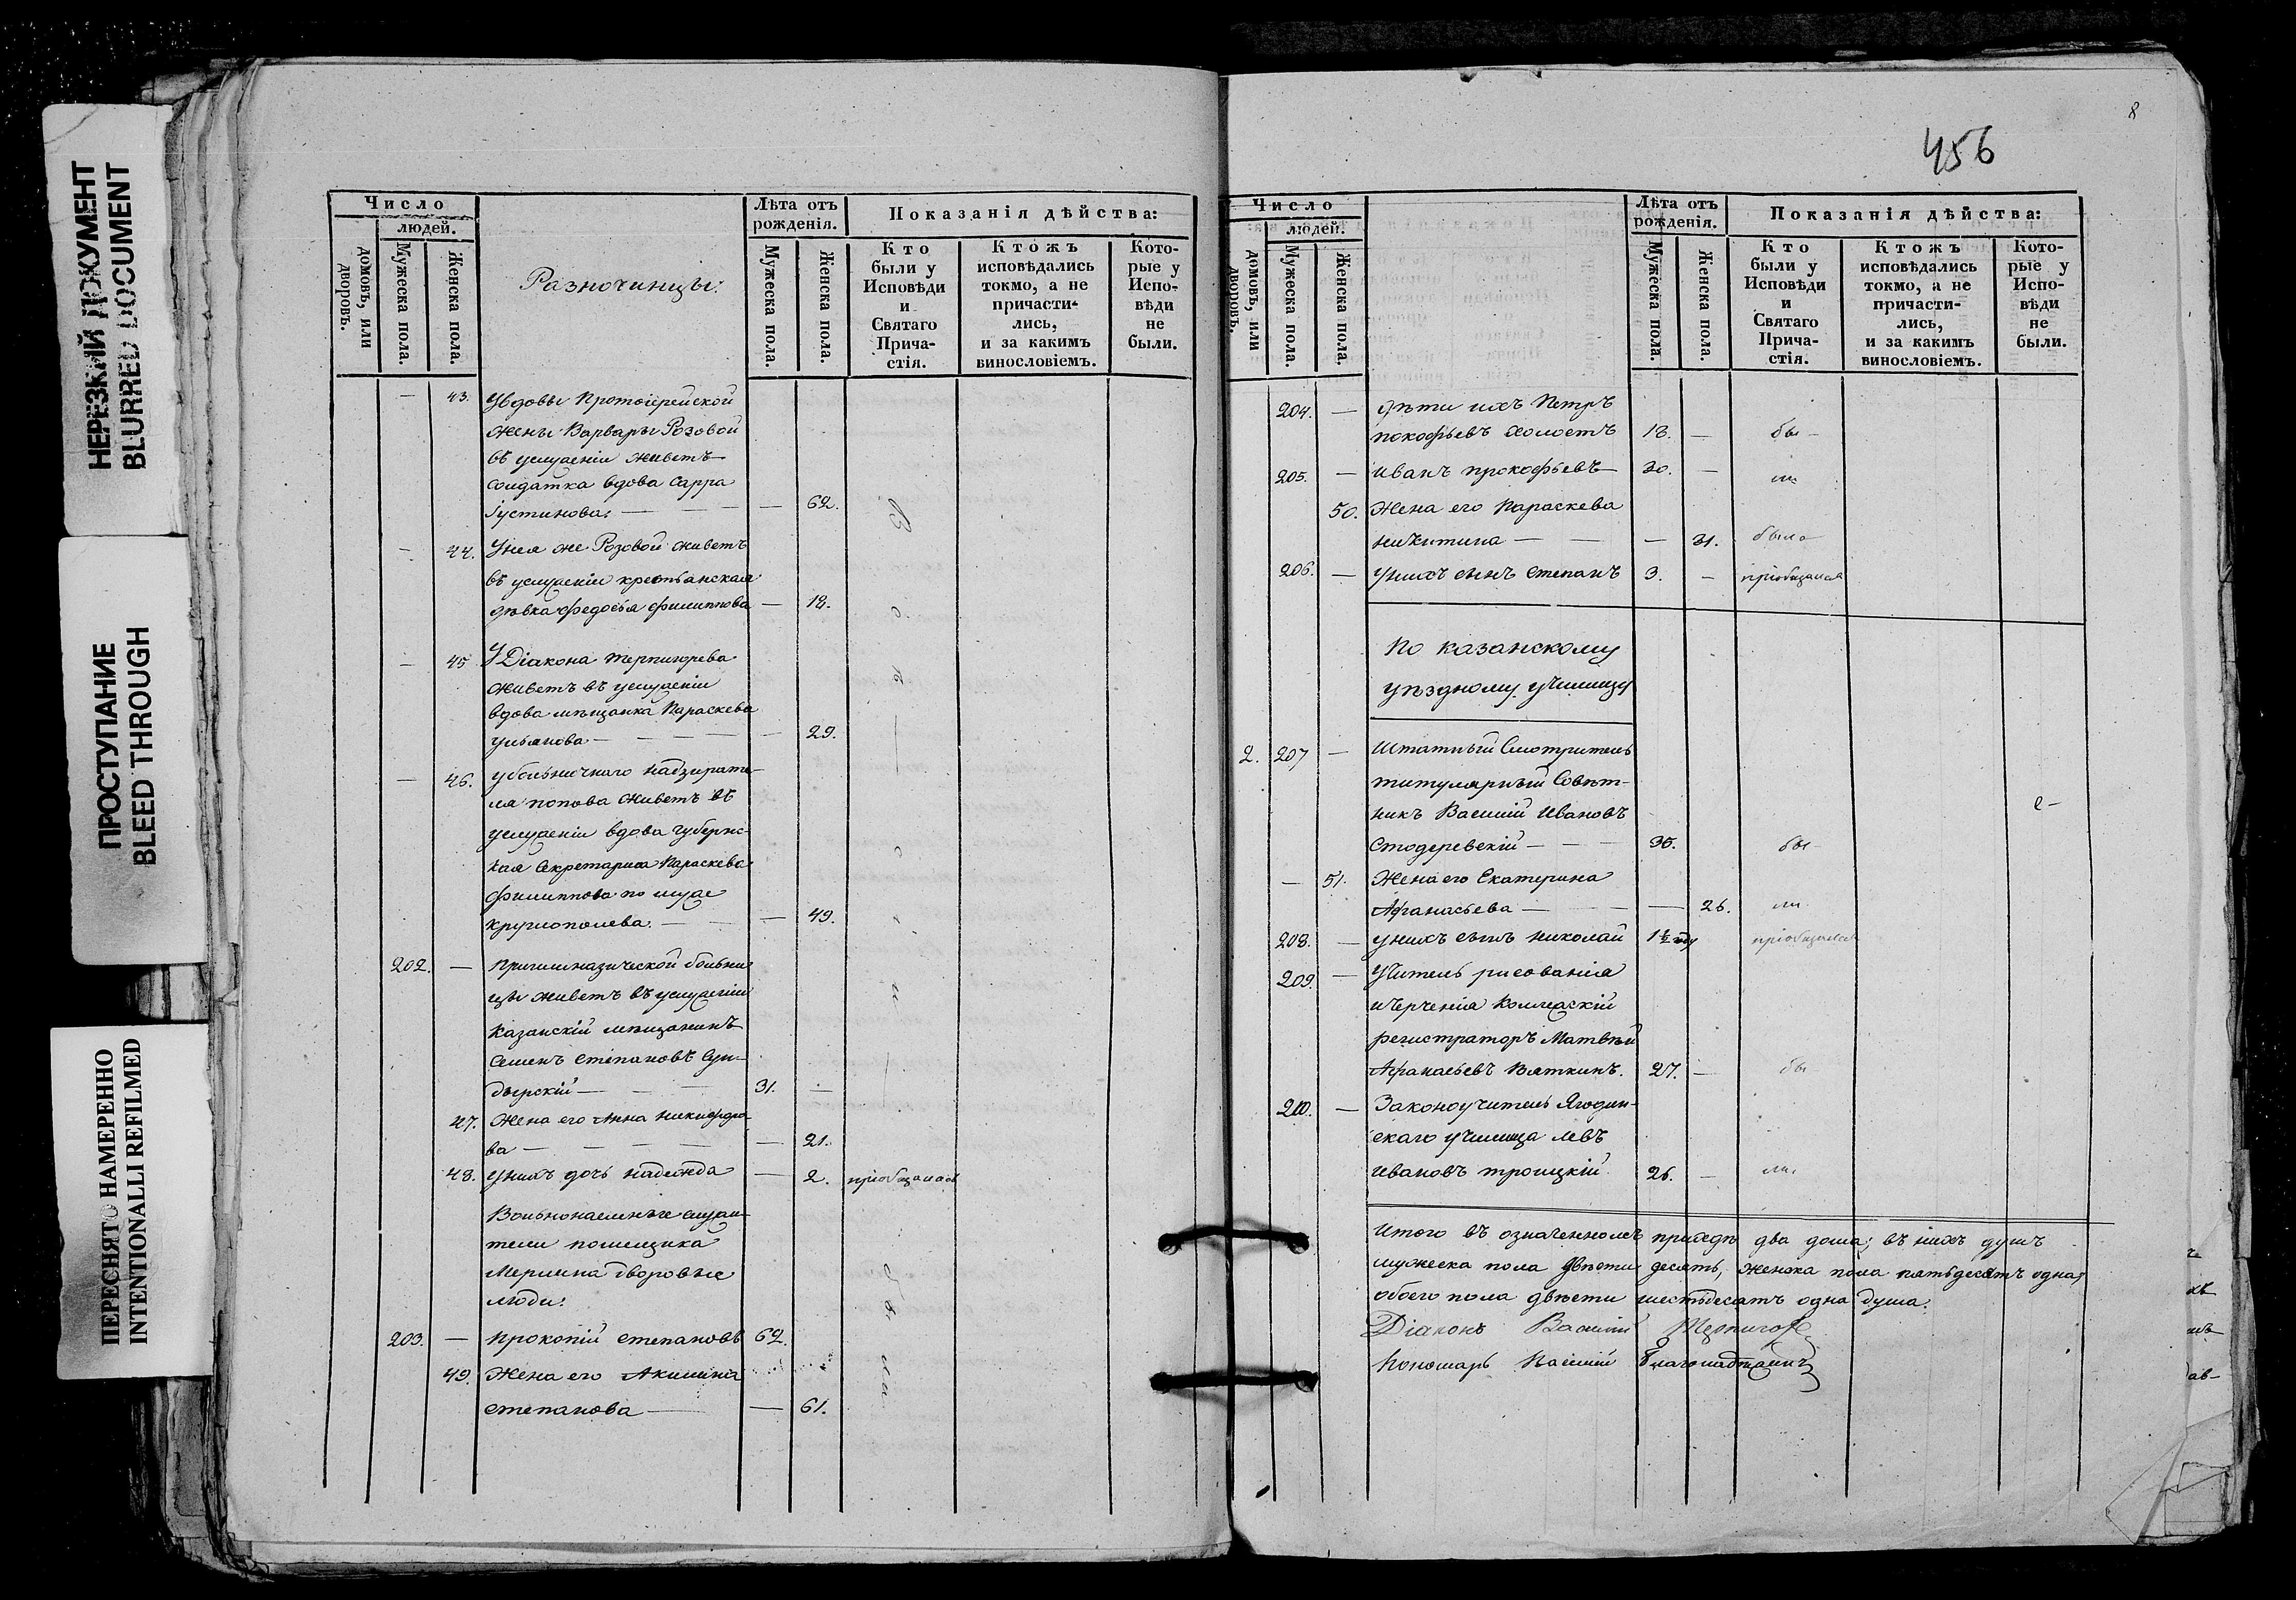 НЕРЕЗКИЙ ДОКУМЕНТ
BLURRED DOCUMENT
ПРОСТУПАНИЕ
BLEED THROUGH
ПЕРЕСНЯТО НАМЕРЕННО
INTENTIONALLI REFILMED
Число
людей.
домовъ, или дворовъ.
Мужеска пола.
Женска пола.
Разночинцы:
Лѣта отъ рожденія.
Мужеска пола.
Женска пола.
Показанія дѣйства:
Кто были у Исповѣди и Святаго Прича-стія.
Ктожъ исповѣдались токмо, а не причасти-лись, и за какимъ винословіемъ.
Кото-рые у Испо-вѣди не были.
— 43. Увдовы Протоіерейской
жены Варвары Розовой
въ услуженіи живетъ
солдатка вдова Сарра
Іустинова — — 62.
— 44. Унея же Розовой живетъ
въ услуженіи крестьанская
дѣвка Федосья Филиппова — 18.
— 45 У Діакона Терпигорева
живетъ въ услуженіи
вдова мѣщанка Параскева
Ульянова — — 29.
— 46. убольничнаго надзирате-
ля Попова живетъ въ
услуженіи вдова губернс-
кая Секретарша Параскева
Филиппова по мужѣ
Круглополева. — 49.
202. — Пригимназической больни-
цы живетъ въ услуженіи
Казанскій мѣщанинъ
Семенъ Степановъ
дырскій — 31. —
47. Жена его Анна Никифоро
ва — — 21.
48. Унихъ дочь Надежда — 2. пріобщалась
Вольнонаемные служи-
тели помещика
дворовые
люди:
203. — Прокопій Степановъ 62.
49. Жена его Акилина
Степанова — — 61.
8
456
Число
людей.
домовъ, или дворовъ.
Мужеска пола.
Женска пола.
Лѣта отъ рожденія.
Мужеска пола.
Женска пола.
Показанія дѣйства:
Кто были у Исповѣди и Святаго Прича-стія.
Ктожъ исповѣдались токмо, а не причасти-лись, и за какимъ винословіемъ.
Кото-рые у Испо-вѣди не были.
204. — Дѣти ихъ Петръ
Покофьевъ холостъ 18. — бы —
205. — Иванъ Прокофьевъ 30. — ли
50. Жена его Параскева
Никитина — — 31. была
206. — Унихъ сынъ Степанъ 3. — пріобщался
По казанскому
уѣздному училищу
2. 207 — Штатный Смотритель
титулярный Совѣт-
никъ Василій Ивановъ
Стодеревскій — 35. бы —
— 51. Жена его Екатерина
Афанасьева — — 26. ли
208. — унихъ сынъ Николай 1½ году пріобщался
209. — Учитель рисованія
ичерченія Коллежскій
регистраторъ Матвѣй
Афанасьевъ Вяткинъ. 27. — бы
210. — Законоучитель Ягодин-
скаго училища Левъ
Ивановъ Троицкій 26. — ли
Итого въ означенномъ приходѣ два дома; въ нихъ душъ
мужеска пола двѣсти десять, женска пола пятьдесятъ одна,
обоего пола двѣсти шестьдесятъ одна душа.
Діаконъ Василій Терпигоре
Пономарь Василій